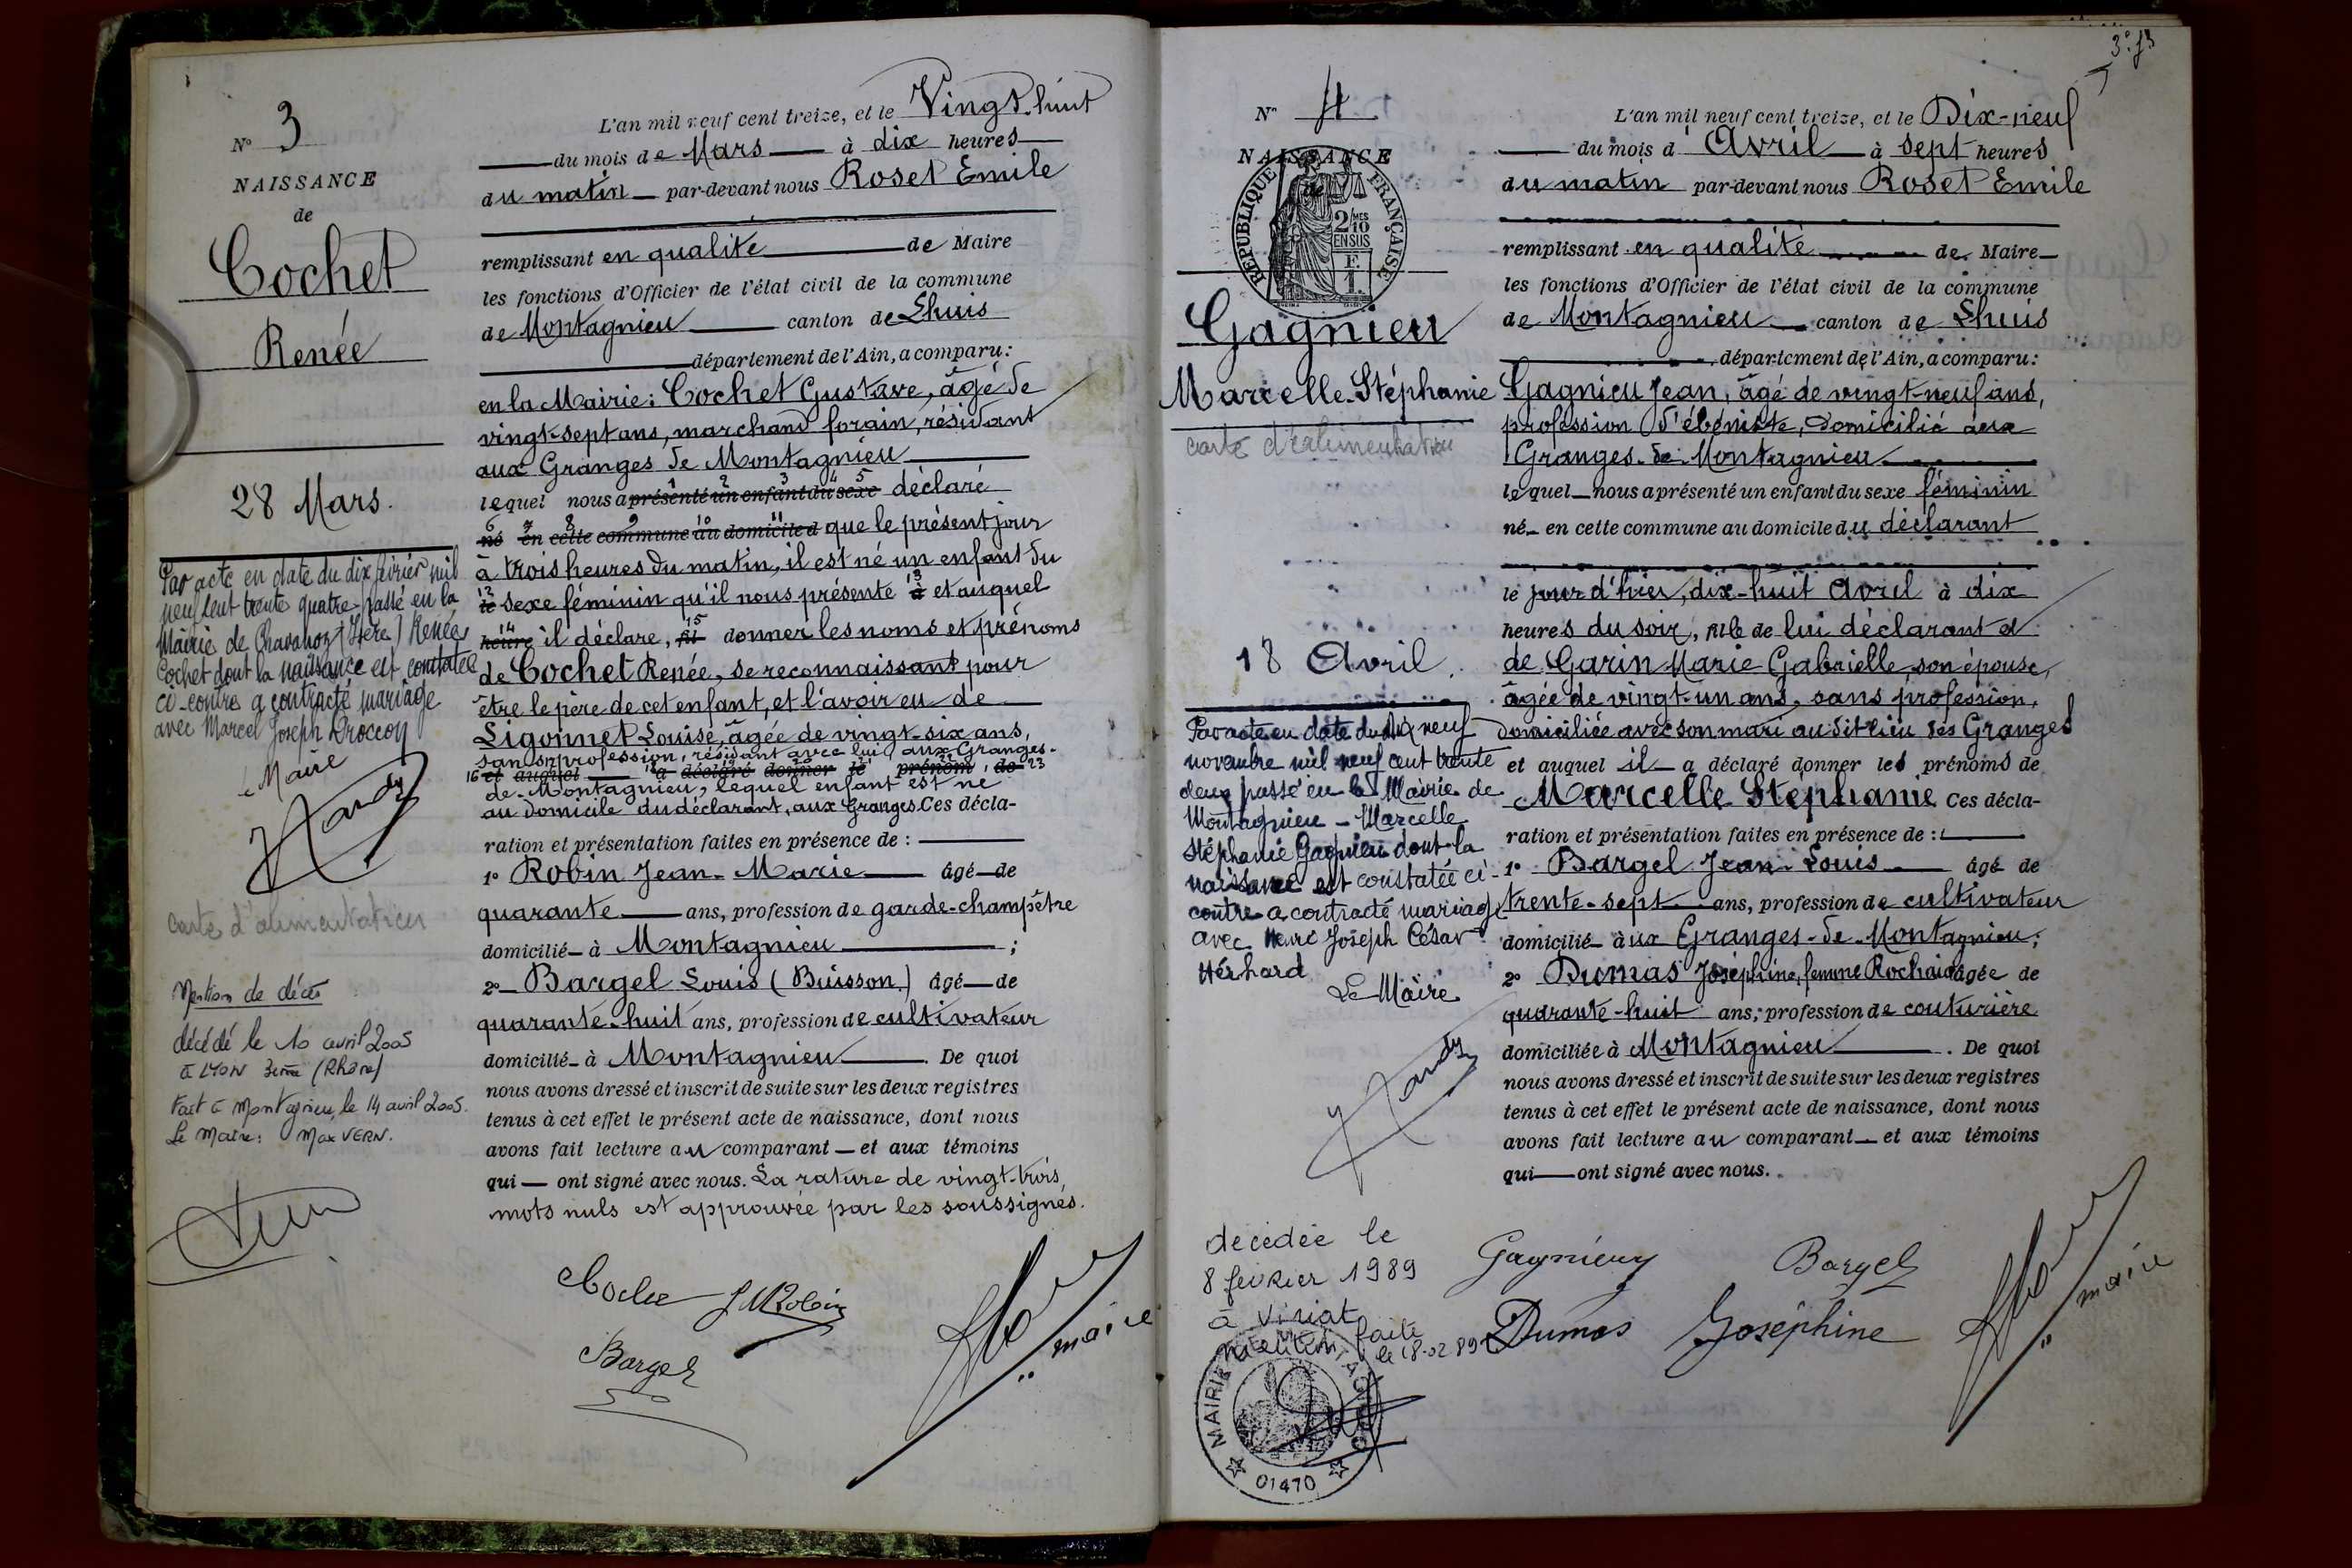 N° 3
NAISSANCE
de
Cochet
Renée
28 Mars.
Par acte en date du dix février mil
neuf cent trente quatre passé en la
Mairie de Chavanoz (Isère) Renée
Cochet dont la naissance est constatée
ci-contre a contracté mariage
avec Marcel Joseph
Maire
Hardy
carte d'alimentation
Mention de décès
décédé le 10 avril 2005
à LYON 3ème (Rhône)
Fait à Montagnieu, le 14 avril 2005.
Le Maire: Max VERN.
L'an mil neuf cent treize, et le Vingt-huit
du mois de Mars à dix heures
du matin par-devant nous Roset Emile
remplissant en qualité de Maire
les fonctions d'Officier de l'état civil de la commune
de Montagnieu canton de Lhuis
département de l'Ain, a comparu:
en la Mairie: Cochet Gustave, âgé de
vingt-sept ans, marchand forain, résidant
aux Granges de Montagnieu
lequel nous a présenté un enfant du sexe déclaré
né en cette commune au domicile d que le présent jour
à trois heures du matin, il est né un enfant du
le sexe féminin qu'il nous présente à et auquel
heure il déclare, fil donner les noms et prénoms
de Cochet Renée, se reconnaissant pour
être le père de cet enfant, et l'avoir eu de
Ligonnet Louise, âgée de vingt-six ans,
sans profession, résidant avec lui aux Granges-
16 et auquel a déclaré donner le prénom de 23
de-Montagnieu, lequel enfant est né
au domicile du déclarant, aux Granges. Ces décla-
ration et présentation faites en présence de :
1° Robin Jean-Marie âgé de
quarante ans, profession de garde-champêtre
domicilié à Montagnieu ;
2° Bargel Louis (Buisson) âgé de
quarante-huit ans, profession de cultivateur
domicilié à Montagnieu . De quoi
nous avons dressé et inscrit de suite sur les deux registres
tenus à cet effet le présent acte de naissance, dont nous
avons fait lecture au comparant et aux témoins
qui ont signé avec nous. La rature de vingt-trois,
mots nuls est approuvée par les soussignés.
Cochet JM Robin
Bargel
maire
N° 4
NAISSANCE
de
RÉPUBLIQUE FRANÇAISE
2/10 MES
EN SUS
F.
1.
Gagnieu
Marcelle-Stéphanie
carte d'alimentation
18 Avril.
Par acte en date du dix neuf
novembre mil neuf cent trente
deux passé en la Mairie de
Montagnieu - Marcelle
Stéphanie Gagnieu dont la
naissance est constatée ci-
contre a contracté mariage
avec Henri Joseph César
Hérhard
Le Maire
Hardy
decédée le
8 février 1989
à Viriat
mention faite
le 18-02 89
MAIRIE MONTAGNIEU
01470
L'an mil neuf cent treize, et le Dix-neuf
du mois d' Avril à sept heures
du matin par-devant nous Roset Emile
remplissant en qualité de Maire
les fonctions d'Officier de l'état civil de la commune
de Montagnieu canton de Lhuis
département de l'Ain, a comparu:
Gagnieu Jean, âgé de vingt-neuf ans,
profession d'ébéniste, domicilié aux
Granges-de-Montagnieu
lequel nous a présenté un enfant du sexe féminin
né en cette commune au domicile du déclarant
le jour d'hier, dix-huit Avril à dix
heures du soir, fille de lui déclarant et
de Garin Marie Gabrielle, son épouse,
âgée de vingt-un ans, sans profession,
domiciliée avec son mari au dit lieu des Granges
et auquel il a déclaré donner les prénoms de
Marcelle Stéphanie Ces décla-
ration et présentation faites en présence de :
1° Bargel Jean-Louis âgé de
trente-sept ans, profession de cultivateur
domicilié aux Granges-de-Montagnieu;
2° Dumas Joséphine, femme Rochaix âgée de
quarante-huit ans, profession de couturière
domiciliée à Montagnieu . De quoi
nous avons dressé et inscrit de suite sur les deux registres
tenus à cet effet le présent acte de naissance, dont nous
avons fait lecture au comparant et aux témoins
qui ont signé avec nous.
Gagnieu Bargel
Dumas Joséphine
maire